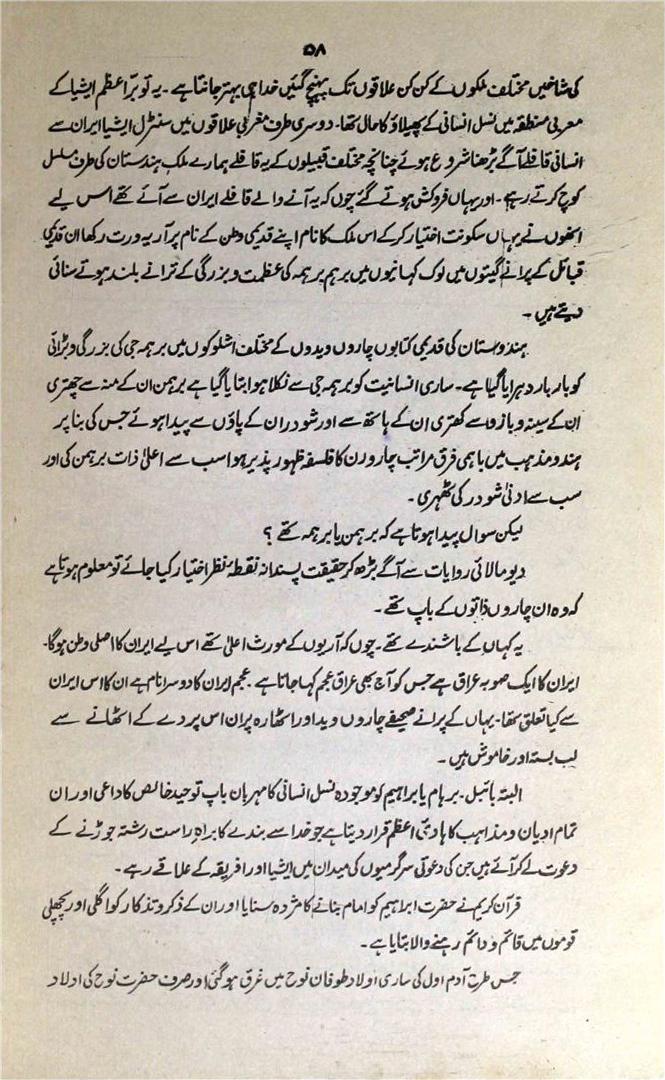 ۵۸
کی شاخیں مختلف ملکوں کے کن کن علاقوں تک پہنچ گئیں خدا ہی بہتر جانتا ہے۔ یہ تو برّاعظم ایشیا کے
مغربی منطقہ میں نسل انسانی کے پھیلاؤ کا حال تھا۔ دوسری طرف مغربی علاقوں میں سنٹرل ایشیا ایران سے
انسانی قافلے آگے بڑھنا شروع ہوئے چنانچہ مختلف قبیلوں کے یہ قافلے ہمارے ملک ہندستان کی طرف مسلسل
کوچ کرتے رہے۔ اور یہاں فروکش ہوتے گئے چوں کہ یہ آنے والے قافلے ایران سے آئے تھے اس لیے
انھوں نے یہاں سکونت اختیار کرکے اس ملک کا نام اپنے قدیمی وطن کے نام پر آریہ ورت رکھا ان قدیمی
قبائل کے پرانے گیتوں میں لوک کہانیوں میں برہم برہمہ کی عظمت و بزرگی کے ترانے بلند ہوتے سنائی
دیتے ہیں۔
ہندوستان کی قدیمی کتابوں چاروں ویدوں کے مختلف اشلوکوں میں برہمہ جی کی بزرگی و بڑائی
کو بار بار دہرایا گیا ہے۔ ساری انسانیت کو برہمہ جی سے نکلا ہوا بتایا گیا ہے برہمن ان کے منہ سے چھتری
ان کے سینہ و بازو سے کھتری ان کے ہاتھ سے اور شودر ان کے پاؤں سے پیدا ہوئے جس کی بنا پر
ہندو مذہب میں باہمی فرق مراتب چار ورن کا فلسفہ ظہور پذیر ہوا سب سے اعلیٰ ذات برہمن کی اور
سب سے ادنیٰ شودر کی ٹھہری۔
لیکن سوال پیدا ہوتا ہے کہ برہمن یا برہمہ تھے ؟
دیو مالائی روایات سے آگے بڑھ کر حقیقت پسندانہ نقطۂ نظر اختیار کیا جائے تو معلوم ہوتا ہے
کہ وہ ان چاروں ذاتوں کے باپ تھے۔
یہ کہاں کے باشندے تھے۔ چوں کہ آریوں کے مورث اعلیٰ تھے اس لیے ایران کا اصلی وطن ہوگا۔
ایران کا ایک صوبہ عراق ہے جس کو آج بھی عراق عجم کہا جاتا ہے۔ عجم ایران کا دوسرا نام ہے ان کا اس ایران
سے کیا تعلق تھا۔ یہاں کے پرانے صحیفے چاروں وید اور اٹھارہ پران اس پردے کے اٹھانے سے
لب بستہ اور خاموش ہیں۔
البتہ بائبل۔ برہام یا براہیم کو موجودہ نسل انسانی کا مہربان باپ توحید خالص کا داعی اور ان
تمام ادیان و مذاہب کا ہادیٔ اعظم قرار دیتا ہے جو خدا سے بندے کا براہ راست رشتہ جوڑنے کے
دعوت لے کر آئے ہیں جن کی دعوتی سرگرمیوں کی میدان میں ایشیا اور افریقہ کے علاقے رہے۔
قرآن کریم نے حضرت ابراہیم کو امام بنانے کا مژدہ سنایا اور ان کے ذکر و تذکار کو اگلی اور پچھلی
قوموں میں قائم و دائم رہنے والا بتایا ہے۔
جس طرح آدم اول کی ساری اولاد طوفان نوح میں غرق ہوگئی اور صرف حضرت نوح کی اولاد